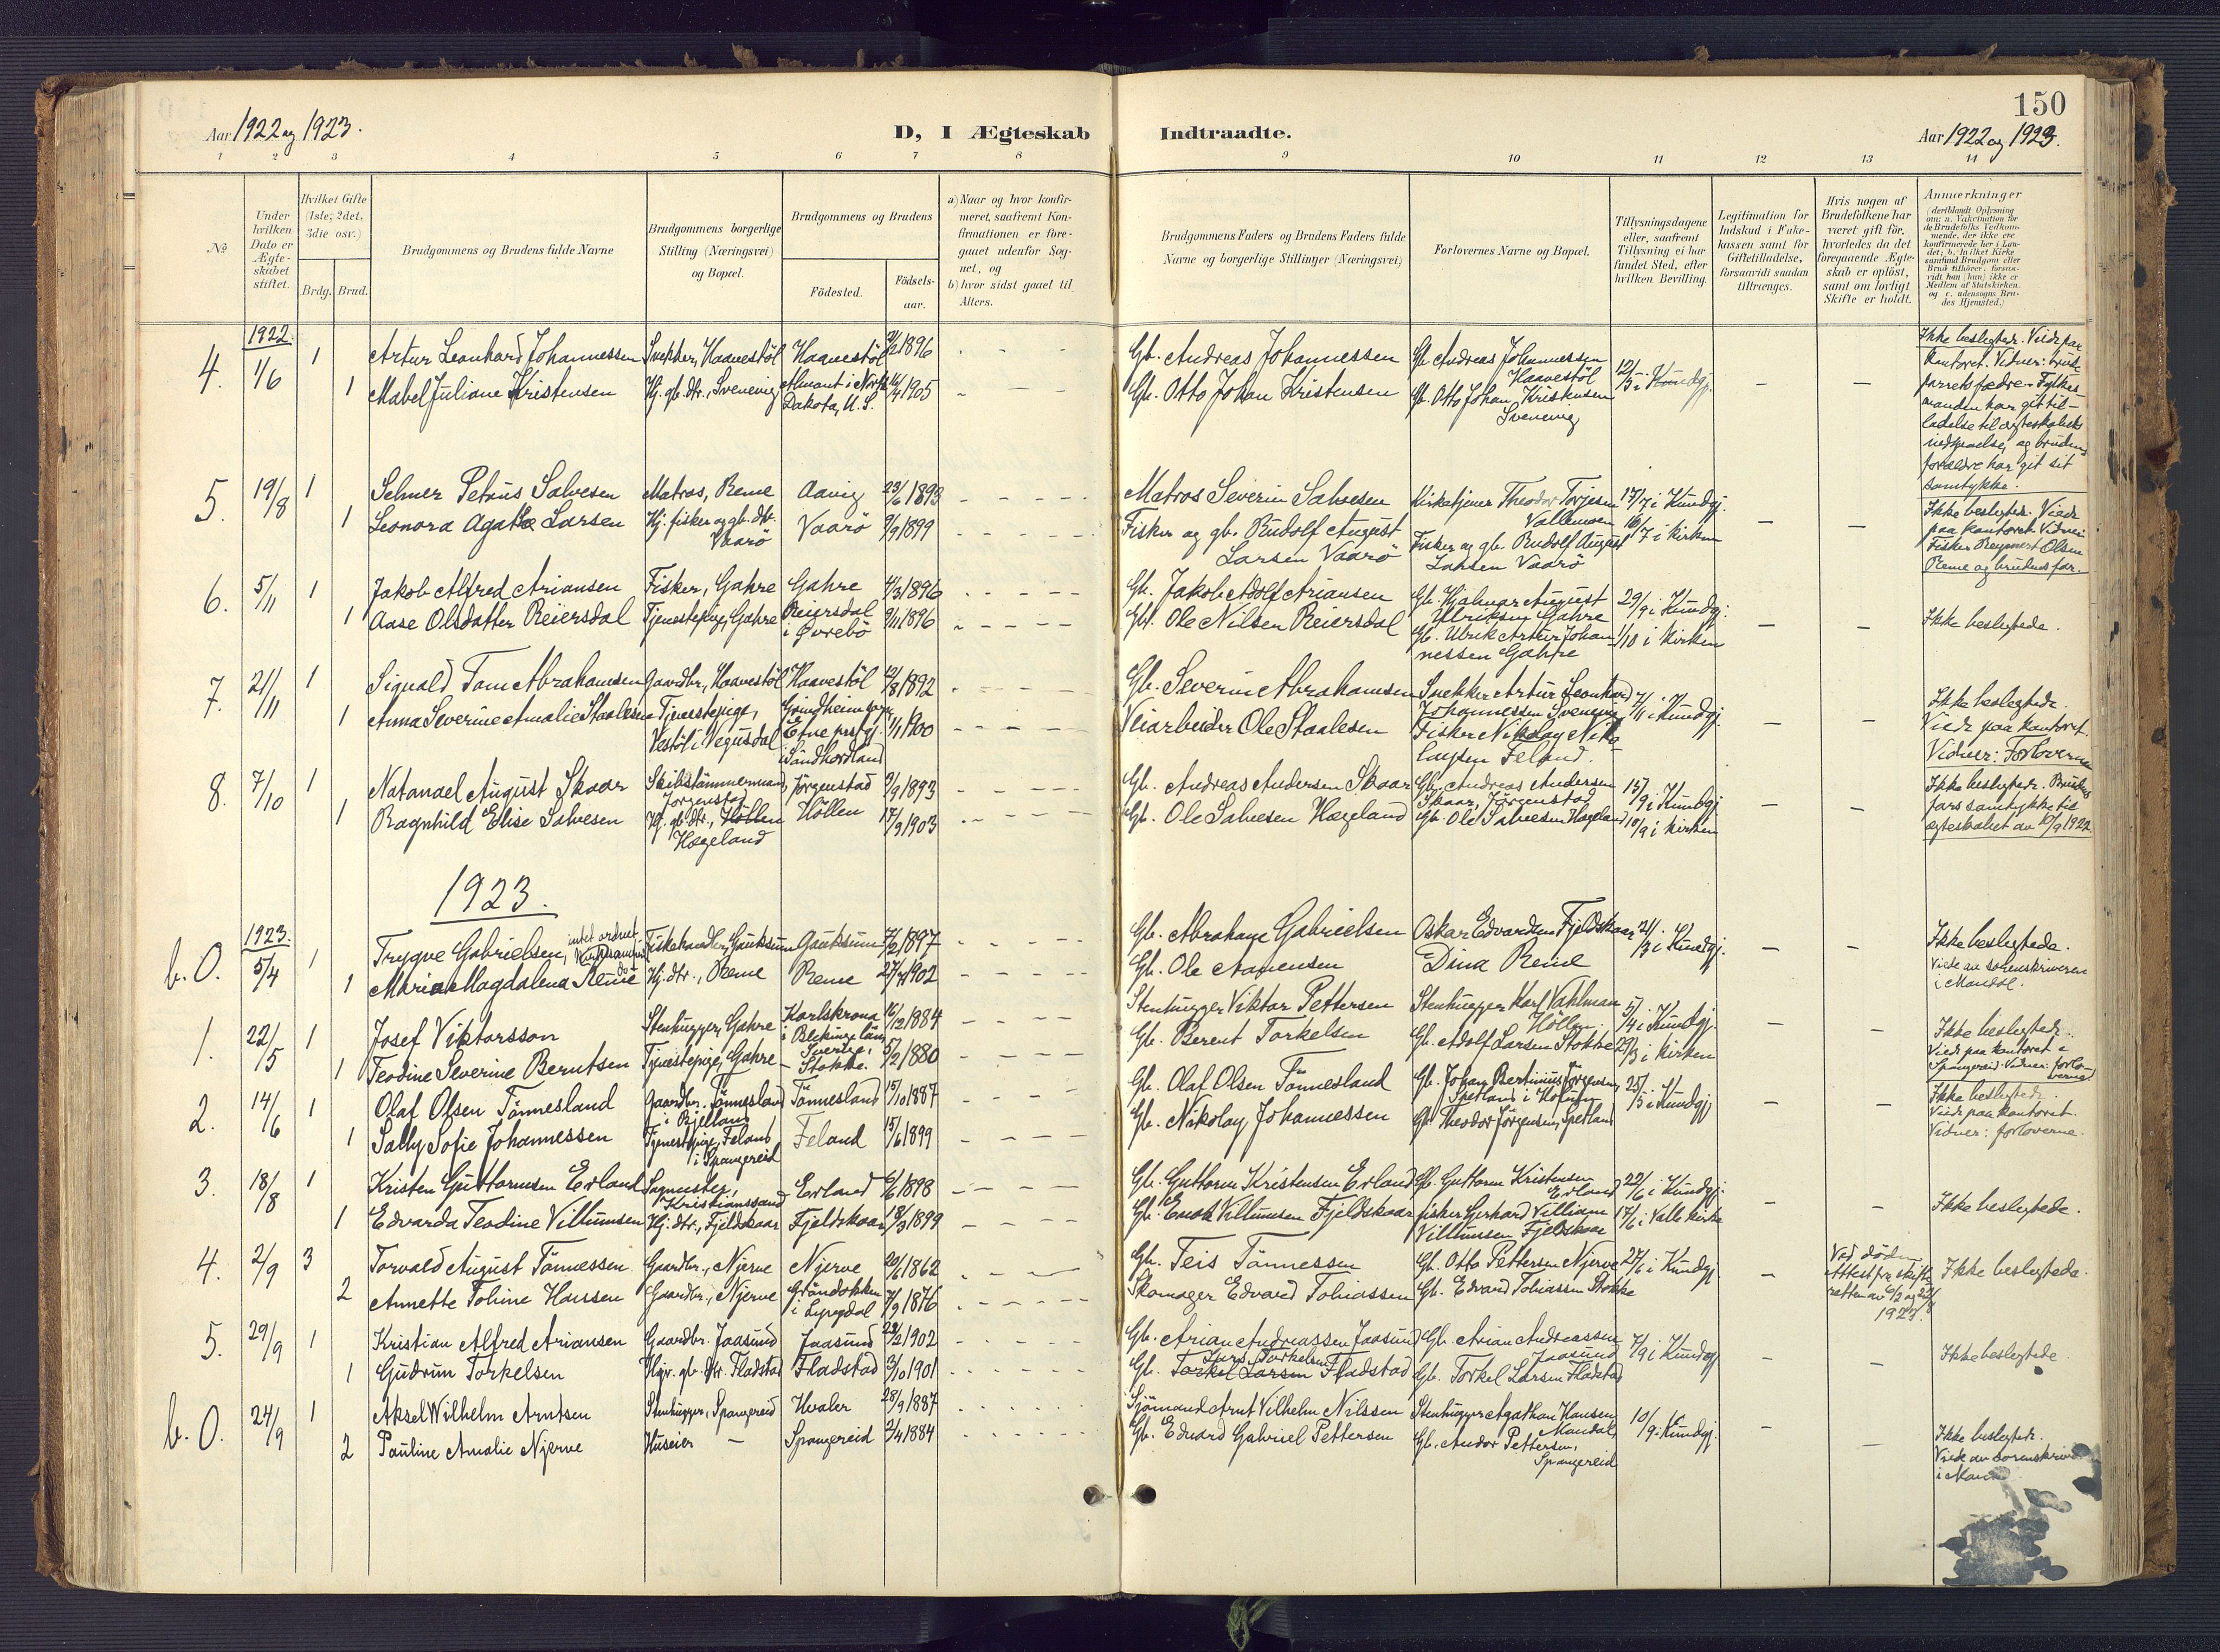 150
Aar 1922 og 1923.
D, I Ægteskab Indtraadte.
Aar 1922 og 1923.
1 2 3 4 5 6 7 8 9 10 11 12 13 14
No
Under hvilken Dato er Ægteskabet stiftet.
Hvilket Gifte (1ste, 2det, 3die osv.)
Brdg. Brud.
Brudgommens og Brudens fulde Navne
Brudgommens borgerlige Stilling (Næringsvei) og Bopæl.
Brudgommens og Brudens
Födested. Födsels-aar.
a) Naar og hvor konfirmeret, saafremt Konfirmationen er foregaaet udenfor Sognet, og
b) hvor sidst gaaet til Alters.
Brudgommens Faders og Brudens Faders fulde Navne og borgerlige Stillinger (Næringsvei)
Forlovernes Navne og Bopæl.
Tillysningsdagene eller, saafremt Tillysning ei har fundet Sted, efter hvilken Bevilling.
Legitimation for Indskud i Enkekassen samt for Giftetilladelse, forsaavidt saadan tiltrænges.
Hvis nogen af Brudefolkene har været gift før, hvorledes da det foregaaende Ægteskab er oplöst, samt om lovligt Skifte er holdt.
Anmærkninger
1922.
4. 1/6 1 Artur Leonhard Johannessen Snekker, Haavestöl Haavestöl 1896 Gb. Andreas Johannessen Gb. Andreas Johannessen Haavestöl 12/5 i Kundgj.
1 Mabel Juliane Kristensen Hj. gb. dtr., Svenevig Almont i North Dakota, U.S. 1905 Gb. Otto Johan Kristensen Gb. Otto Johan Kristensen Svenevig
Ikke beslegtede. Viede paa kontoret. Vidner: brudeparrets fædre. Fylkesmanden har git tilladelse til ægteskabets indgaaelse, og brudens forældre har git sit samtykke.
5. 19/8 1 Selmer Petrus Salvesen Matros, Reme Aavig 23/6 1893 Matros Severin Salvesen Kirketjener Theodor Torjesen Vallemoen 17/7 i Kundgj.
1 Leonora Agathe Larsen Hj. fisker og gb. dtr. Vaarö Vaarö 9/9 1899 Fisker og gb. Rudolf August Larsen Vaarö Fisker og gb. Rudolf August Larsen Vaarö 16/7 i kirken
Ikke beslegtede. Viede paa kontoret. Vidner: Fisker Olsen Reme og brudens far.
6. 5/11 1 Jakob Alfred Ariansen Fisker, Gahre Gahre 4/3 1896 Gb. Jakob Adolf Ariansen Gb. Hjalmar August Ulriksen Gahre 29/9 i Kundgj.
1 Aase Olsdatter Reiersdal Tjenestepige, Gahre Reiersdal i Øvrebö 9/11 1896 Gb. Ole Nilsen Reiersdal Gb. Ulrik Artur Johannessen Gahre 1/10 i kirken
Ikke beslegtede.
7. 21/11 1 Sigvald Tom Abrahamsen Gaardbr., Haavestöl Haavestöl 1892 Gb. Severin Abrahamsen Snekker Artur Leonhard Johannessen Svenevig 7/11 i Kundgj.
1 Anna Severine Amalie Staalesen Tjenestepige, Vestöl i Vegusdal Grindheim sogn Etne prstgj. i Söndhordland 1/11 1900 Veiarbeider Ole Staalesen Fisker Nikolay Nikolaysen Feland.
Ikke beslegtede. Viede paa kontoret. Vidner: Forloverne
8. 7/10 1 Natanael August Skaar Skibstömmermand, Jörgenstad Jörgenstad 9/9 1893 Gb. Andreas Andersen Skaar Gb. Andreas Andersen Skaar, Jörgenstad 15/9 i Kundgj.
1 Ragnhild Elise Salvesen Hj. gb. dtr., Höllen Hægeland Höllen 17/9 1903 Gb. Ole Salvesen Hægeland Gb. Ole Salvesen Hægeland 10/9 i kirken
Ikke beslegtede. Brudens fars samtykke til ægteskabet av 10/9 1922
1923.
1923.
b. O. 5/4 1 Trygve Gabrielsen, intet ordnet Fiskehandler, Gauksum Gauksum 1897 Gb. Abraham Gabrielsen Oskar Edvardsen Fjeldskaar 21/3 i Kundgj.
1 Marie Magdalena Reme Hj. dtr., Reme Reme 27/7 1902 Gb. Ole Aanensen Dina Reme
Ikke beslegtede. Viede av sorenskriveren i Mandal.
1. 22/5 1 Josef Viktorsson Stenhugger, Gahre Karlskrona i Blekinge län Sverige. 16/12 1884 Stenhugger Viktor Pettersen Stenhugger Karl Vahlman Höllen 5/4 i Kundgj.
1 Teodine Severine Berntsen Tjenestepige, Gahre Stokke 5/2 1880 Gb. Berent Torkelsen Gb. Adolf Larsen Stokke 29/3 i kirken
Ikke beslegtede. Viede paa kontoret i Spangereid. Vidner: forloverne.
2. 14/6 1 Olaf Olsen Tönnesland Gaardbr. Tönnesland i Bjelland Tönnesland 15/10 1887 Gb. Olaf Olsen Tönnesland Gb. Johan Bertinius Jörgensen, Spetland i Holum 25/5 i Kundgj.
1 Sally Sofie Johannessen Tjenestepige, Feland i Spangereid Feland 15/6 1899 Gb. Nikolay Johannessen Gb. Theodor Jörgensen, Spetland
Ikke beslegtede. Viede paa kontoret. Vidner: forloverne.
3. 18/8 1 Kristen Guttormsen Erland Sagmester, Kristianssand Erland 6/6 1898 Gb. Guttorm Kristensen Erland Gb. Guttorm Kristensen Erland 22/6 i Kundgj.
1 Edvarda Teodine Villumsen Hj. dtr., Fjeldskaar Fjeldskaar 18/3 1899 Gb. Enok Villumsen Fjeldskaar fisker Gerhard William Villumsen Fjeldskaar 17/6 i Valle kirke
Ikke beslegtede.
4. 2/9 3 Torvald August Tönnessen Gaardbr., Njerve Njerve 20/6 1862 Gb. Teis Tönnessen Gb. Otto Pettersen Njerve 27/6 i Kundgj.
2 Annette Tobine Hansen Gaardbr., Njerve Gröndokken i Lyngdal 7/9 1876 Skomager Edvard Tobiassen Gb. Edvard Tobiassen Stokke
Ved döden Attest fra skifteretten av 1923.
Ikke beslegtede.
5. 29/9 1 Kristian Alfred Ariansen Gaardbr. Jaasund Jaasund 22/2 1902 Gb. Arian Andreassen Jaasund Gb. Arian Andreassen Jaasund 7/9 i Kundgj.
1 Gudrun Torkelsen Hjv. gb. dtr. Fladstad Fladstad 3/10 1901 Gb. Torkel Larsen Lars Torkelsen Fladstad Gb. Torkel Larsen Fladstad
Ikke beslegtede
b. O. 24/9 1 Aksel Wilhelm Arntsen Stenhugger, Spangereid Hvaler 28/9 1887 Sjömand Arnt Vilhelm Nilssen Stenhugger Agathon Hansen, Mandal 10/9 i Kundgj.
2 Pauline Amalie Njerve Huseier — Spangereid 2/4 1884 Gb. Edvard Gabriel Pettersen Gb. Andor Pettersen, Spangereid
Ikke beslegtede. Viede av sorenskriver i